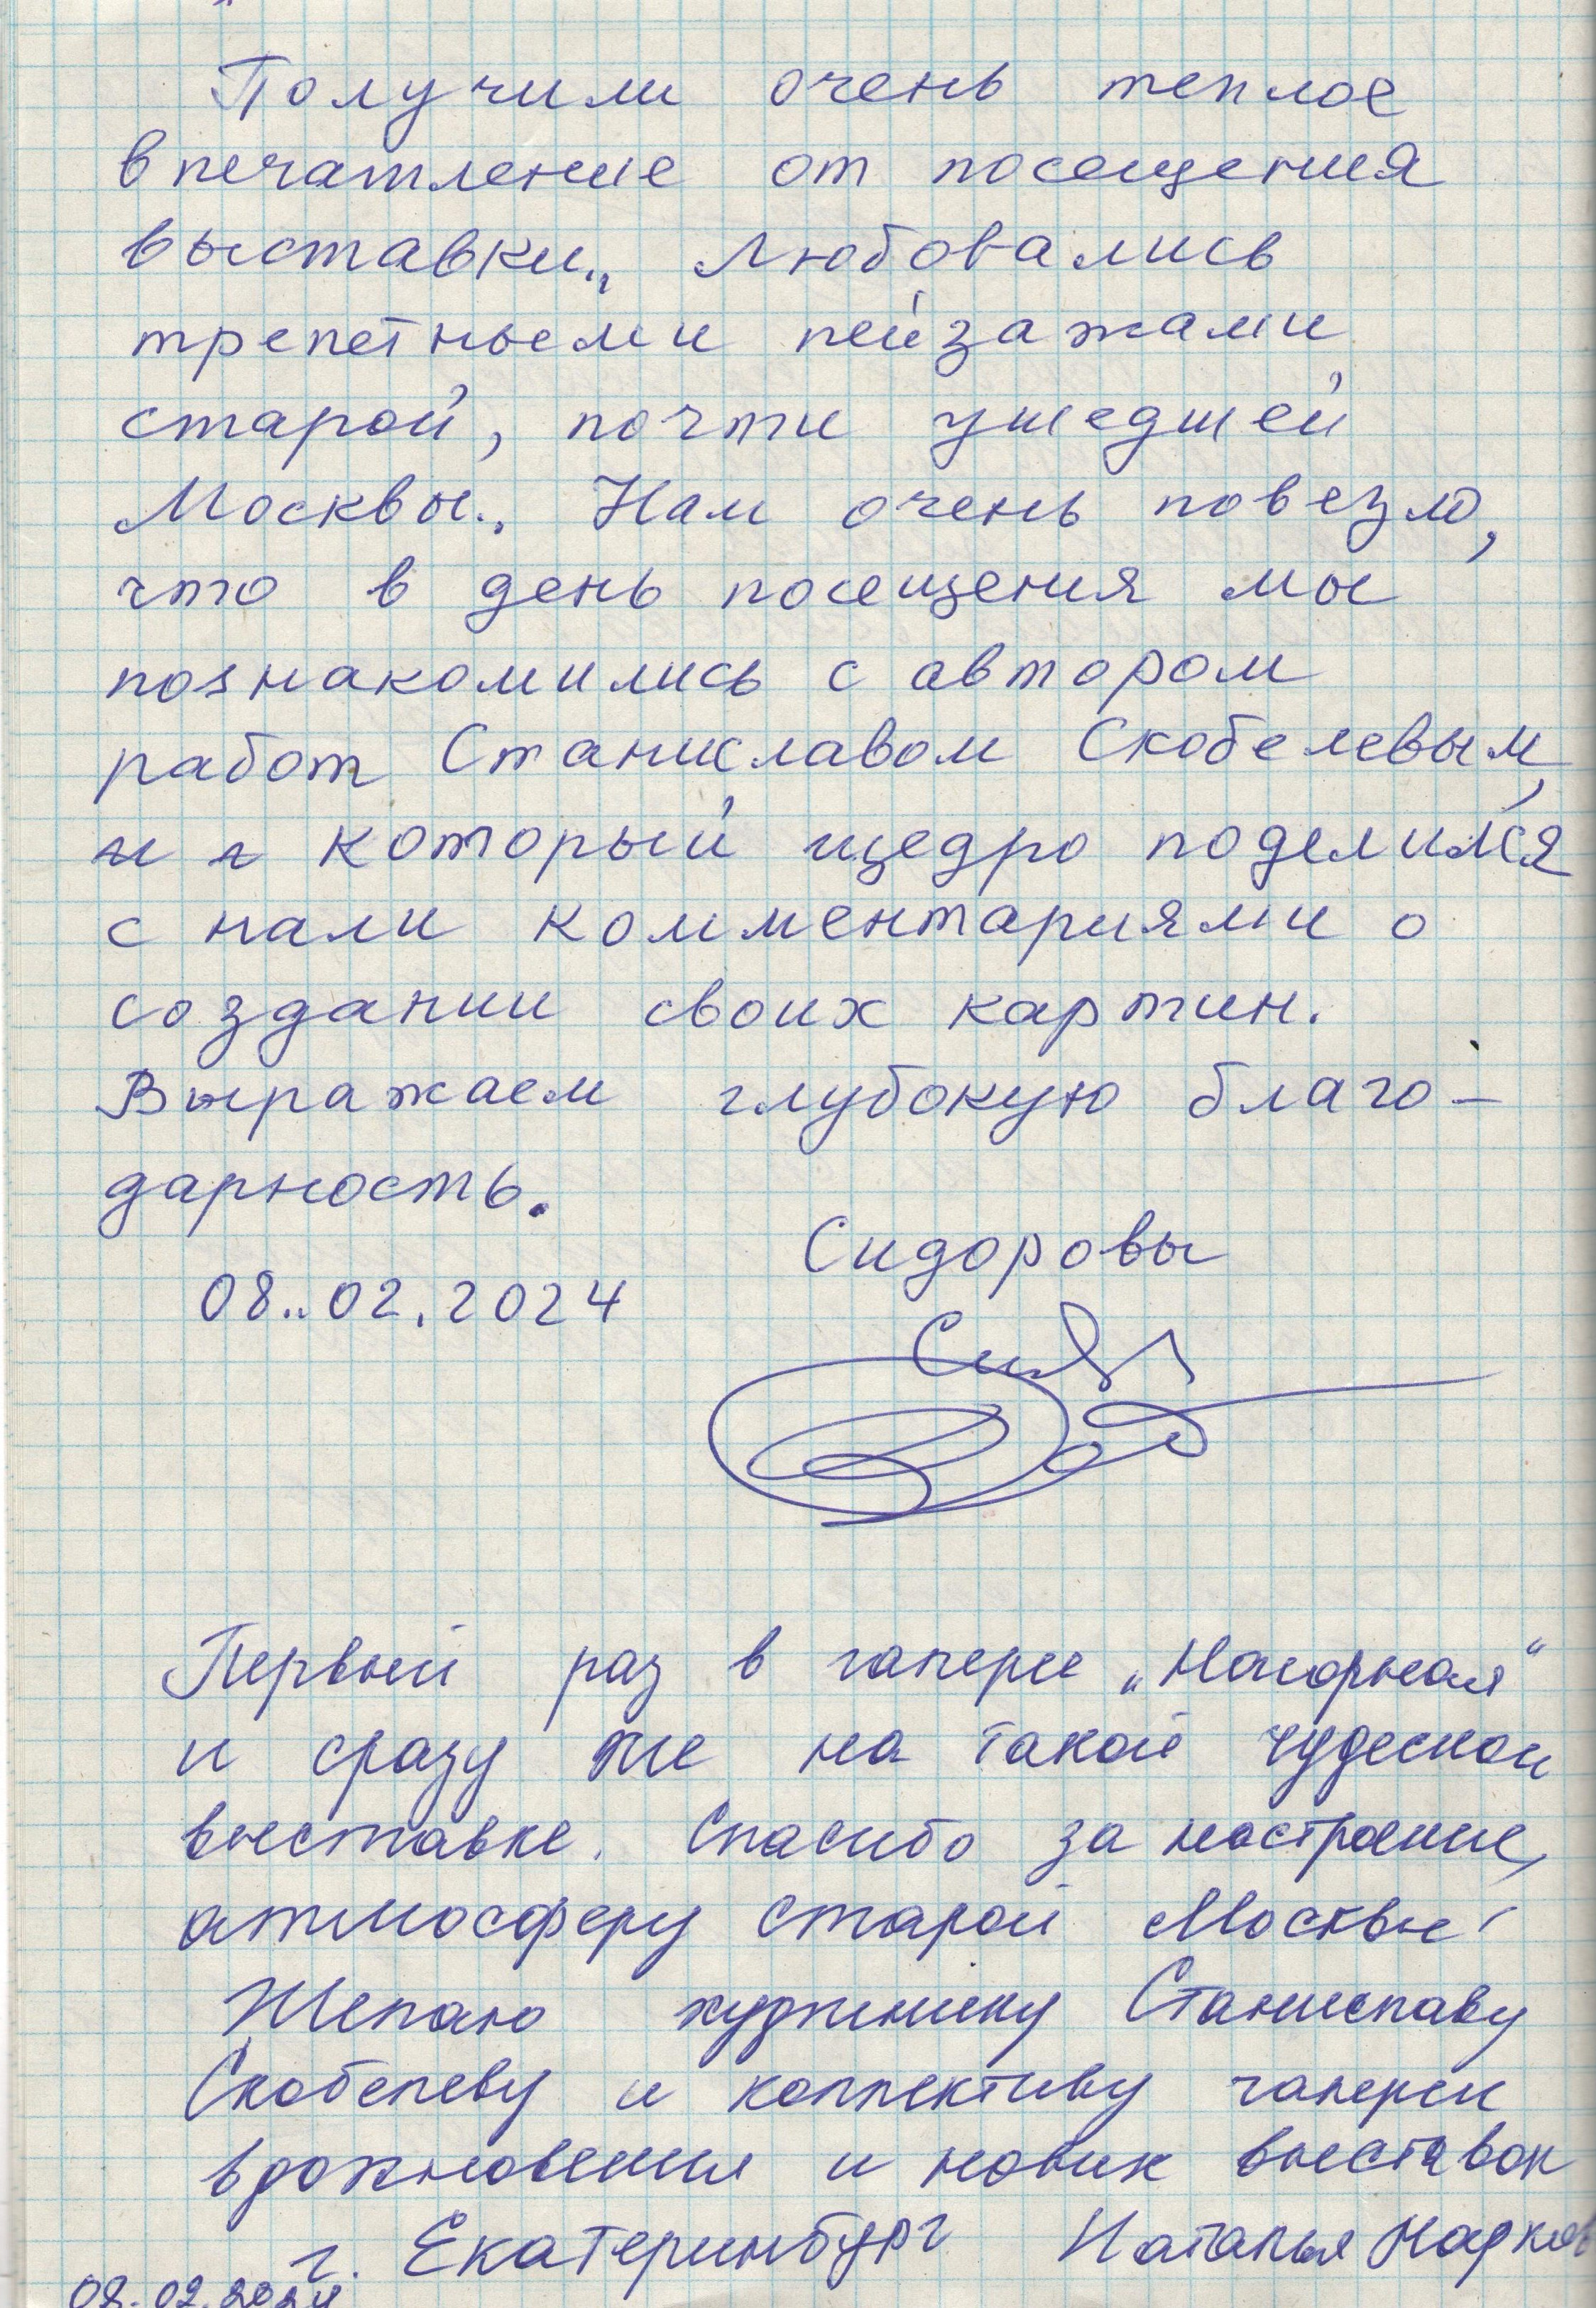 Получили очень теплое
впечатление от посещения
выставки.. Любовались
трепетными пейзажами
старой, почти ушедшей
Москвы.. Нам очень повезло,
что в день посещения мы
познакомились с автором
работ Станиславом Скобелевым,
который щедро поделился
с нами комментариями о
создании своих картин.
Выражаем глубокую благо-
дарность.
Сидоровы
08..02.2024
Первый раз в галерее „Нагорная“
и сразу же на такой чудесной
выставке. Спасибо за настроение,
атмосферу старой Москвы!
Желаю художнику Станиславу
Скобелеву и коллективу галереи
вдохновения и новых выставок
г. Екатеринбург Наталья
08.02.2024